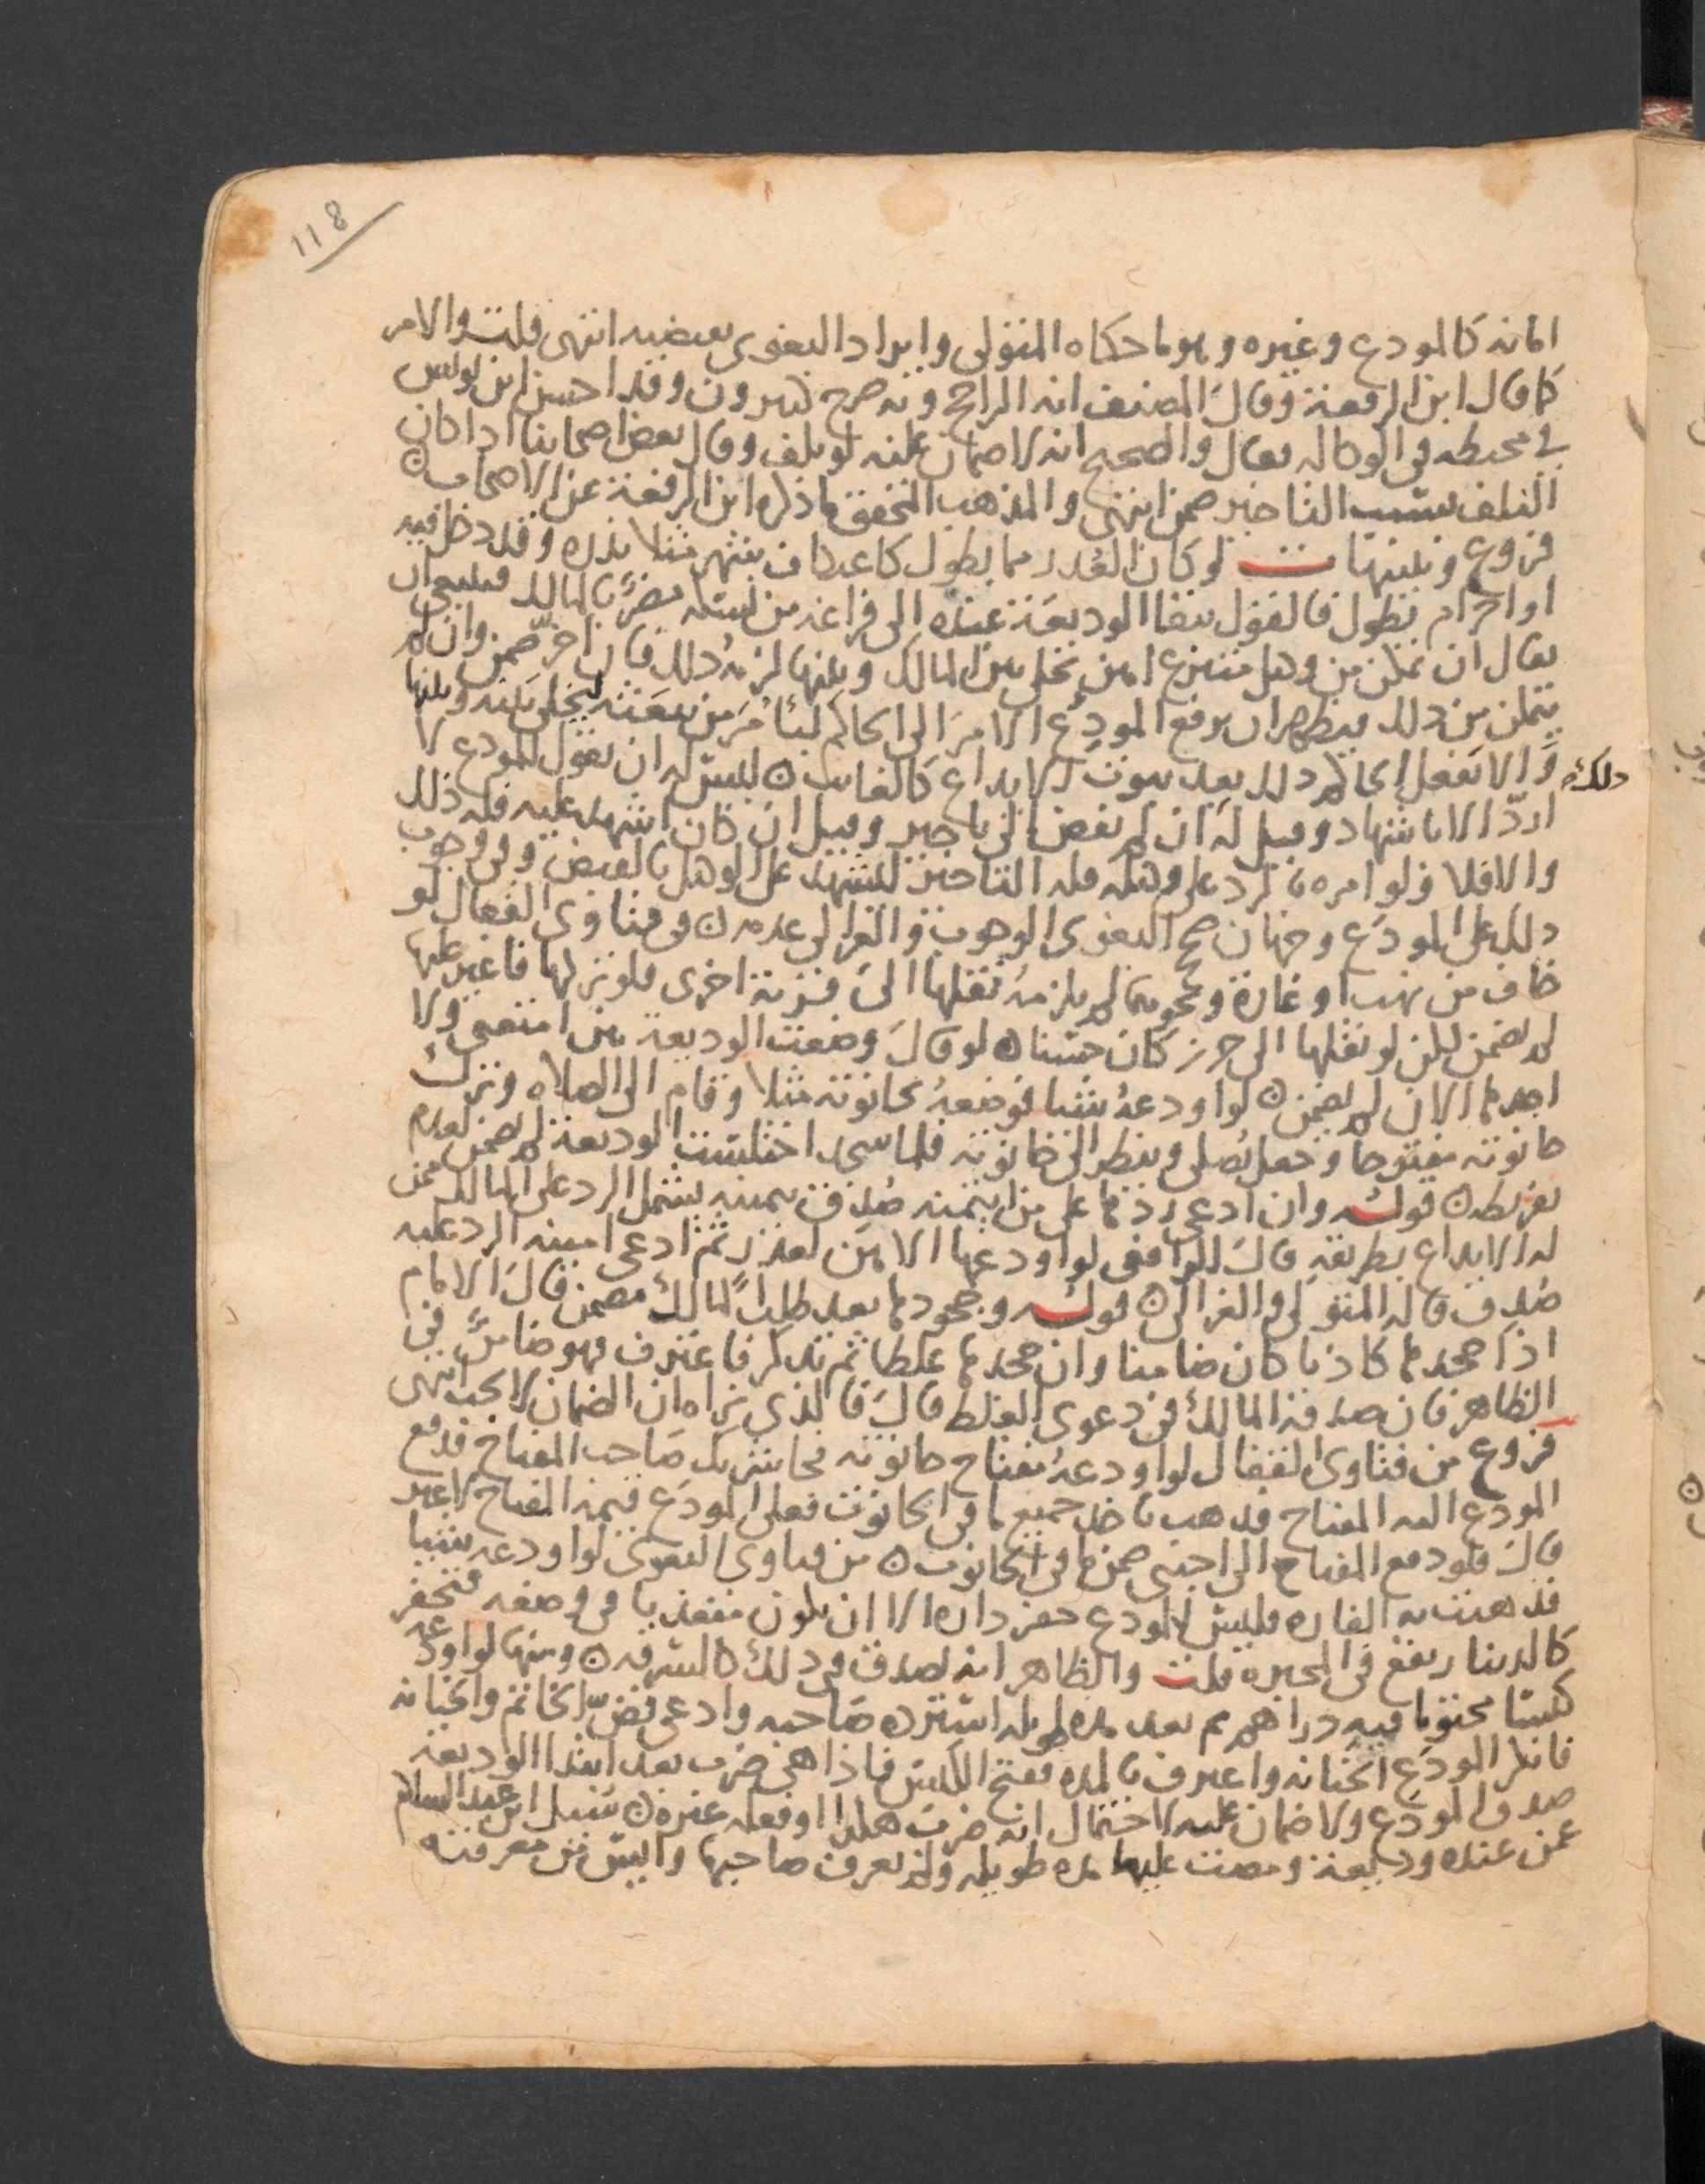 118
امانه كالمودع وغيره وهو ما حكاه المتولي وايراد البغوي يقتضيه انتهى قلت والامر
كما قال ابن الرفعة وقال المصنف انه الراجح وبه صرح كثيرون وقد احسن ابن يونس
في محيطه في الوكاله فقال والصحيح انه لا ضمان عليه لو تلف وقال بعض اصحابنا اذا كان
التلف بسبب التاخير ضمن انتهى والمذهب المحقق ما ذكره ابن الرفعة عن الاصحاب ه
فروع وتنبيهات لو كان العذر مما يطول كاعتكاف شهر مثلا نذره وقد دخل فيه
او احرام يطول فالقول ببقا الوديعة عنده الى فراغه من نسكه مضر بالمالك فينبغي ان
يقال ان تمكن من وكيل متبرع امين يخلي بين المالك وبينها لزمه ذلك فان اخر ضمن وان لم
يتمكن من ذلك فيظهر ان يرفع المودع الامر الى الحاكم ليأمر من يبعثه ليخلي بينه وبينها
والا يفعل الحاكم ذلك بعد ثبوت الايداع كالغائب ه ليس له ان يقول للمودع لا
ذلك
اردّ الا باشهاد وقيل له ان لم يفض الى تاخير وقيل ان كان اشهد عليه فله ذلك
والا فلا ولو امره بالرد على وكيله فله التاخير ليشهد على الوكيل بالقبض وفي وجوب
ذلك على المودع وجهان صحح البغوي الوجوب والغزالي عدمه ه في فتاوى القفال لو
خاف من نهب او غارة ونحوهما لم يلزمه نقلها الى قرية اخرى فلو تركها فاغير عليها
لم يضمن لكن لو نقلها الى حرز كان حسنا ه لو قال وضعت الوديعة بين امتعتي ولا
اجدها الان لم يضمن ه لو اودعه شيا فوضعه بحانوته مثلا وقام الى الصلاه وترك
حانوته مفتوحا وجعل يصلي وينظر الى حانوته فلما سجد اختلست الوديعة لم يضمن لعدم
تفريطه ه قوله وان ادعى ردها على من ايتمنه صُدق بيمينه يشمل الرد على المالك ممن
له الايداع بطريقه قال الرافعي لو اودعها الامين لعذر ثم ادعى امينه الرد عليه
صُدق قاله المتولي والغزالي ه قوله وجحودها بعد طلب المالك مضمن قال الامام
اذا جحدها كاذبا كان ضامنا وان جحدها غلطا ثم تذكر فاعترف فهو ضامن في
الظاهر فان صدقه المالك في دعوى الغلط قال فالذي نراه ان الضمان لا يجب انتهى
فروع من فتاوى القفال لو اودعه مفتاح حانوته فجا شريك صاحب المفتاح فدفع
المودع اليه المفتاح فذهب باخذ جميع ما في الحانوت فعلى المودع قيمة المفتاح لا غير
قال فلو دفع المفتاح الى اجنبي ضمن ما في الحانوت ه من فتاوى البغوي لو اودعه شيا
فذهبت به الفاره فليس للمودع حفر داره الا ان يكون متعديا في وضعه فتحفر
كالدينار يقع في المحبره قلت والظاهر انه يصدق في ذلك كالسرقه ه ومنها لو اودعه
كيسا مختوما فيه دراهم ثم بعد مده طويله استرده صاحبه وادعى فضّ الخاتم والخيانه
فانكر المودع الخيانه واعترف بالمده ففتح الكيس فاذا هي ضرب بعد ابتدا الوديعة
صدق المودع ولا ضمان عليه لاحتمال انه ضرب هكذا او فعله غيره ه سئل ابن عبد السلام
عمن عنده وديعة ومضت عليها مده طويله ولم يعرف صاحبها وايس من معرفته